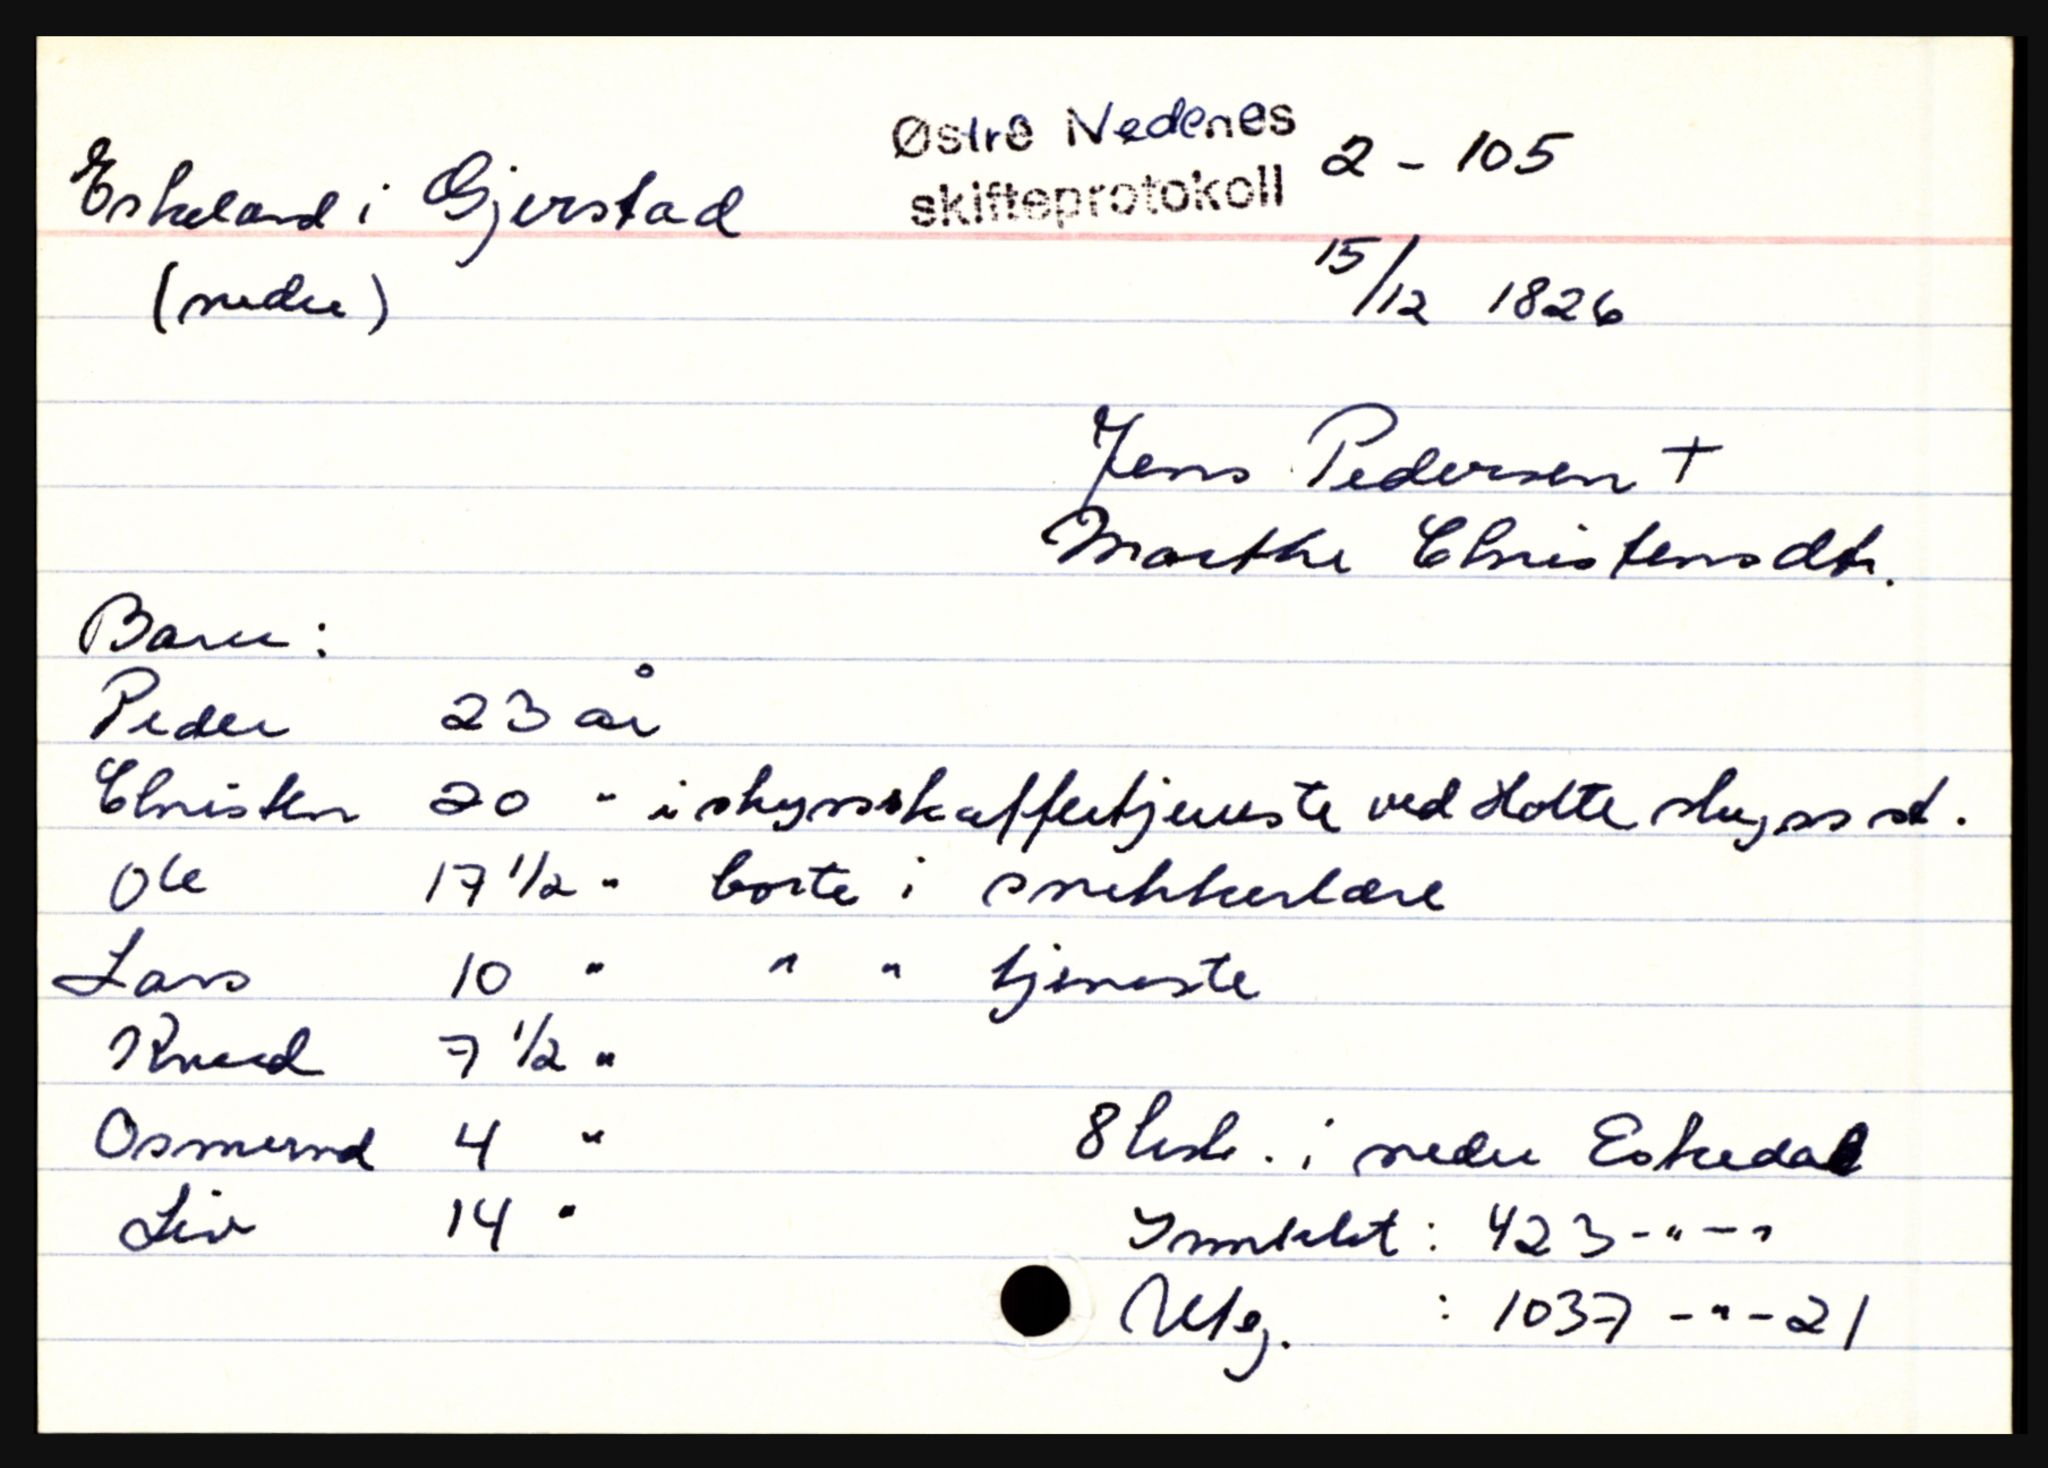 Østre Nedenes 2 - 105
skifteprotokoll
Eskeland i Gjerstad
(nedre)
15/12 1826
Jens Pedersen +
Marthe Christensdtr.
Barn:
Peder 23 år
Christen 20 " i skysskaffertjeneste ved Holte skyss st.
Ole 17 1/2 " borte i snekkerlære
Lars 10 " " " tjeneste
Knud 7 1/2 "
Osmund 4 "
Liv 14 "
8 lisk. i nedre Eskedal
Inntekt : 423-"-"
Utg. : 1037 -"-21